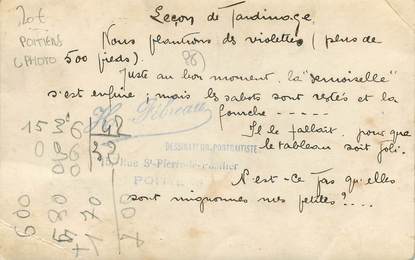 20€
POITIERS
CPHOTO
Leçon de Jardinage.
Nous plantons des violettes (plus de
500 pieds).
(86)
Juste au bon moment, la "demoiselle"
s'est enfuie ; mais les sabots sont restés et la
fourche -----
Il le fallait, pour que
le tableau soit joli.
N'est-ce pas qu'elles
sont mignonnes mes petites ?....
DESSINATEUR-PORTRAITISTE
Rue St-Pierre-le-Puellier
POITIERS